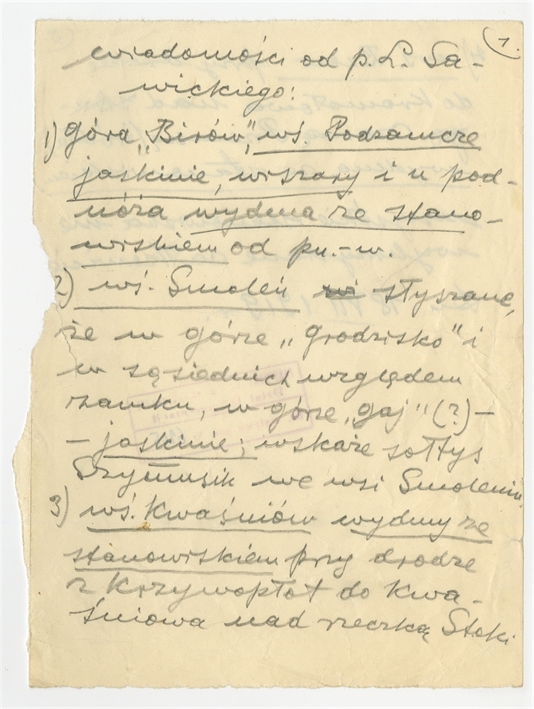 1.
wiadomości od p. L. Sa-
wickiego:
1) góra „Birów”, wś. Podzamcze
jaskinie, wszary i u pod-
nóża wydma ze stano-
wiskiem od pn.-w.
2) wś. Smoleń słyszane,
że w górze „grodzisko” i
w sąsiednich względem
zamku, w górze „gaj” (?) -
- jaskinie; wskaże sołtys
Szymusik we wsi Smoleniu.
3) wś. Kwaśniów wydmy ze
stanowiskiem przy drodze
z Krzywopłot do Kwa-
śniowa nad rzeczką Stoki